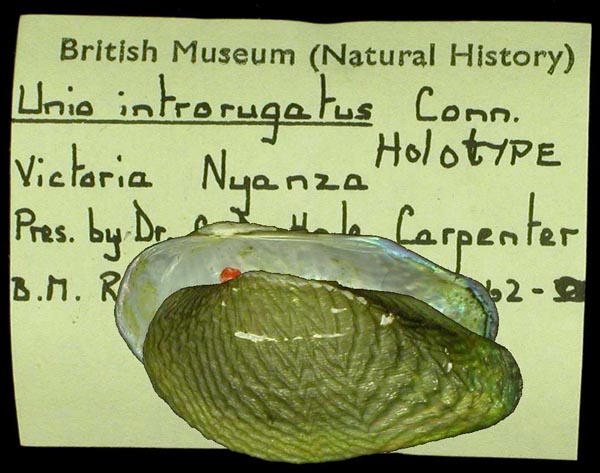 British Museum (Natural History)
Unio introrugatus Conn.
HolotYPE
Victoria Nyanza
Pres. by Dr. Carpenter
B.M. 62-